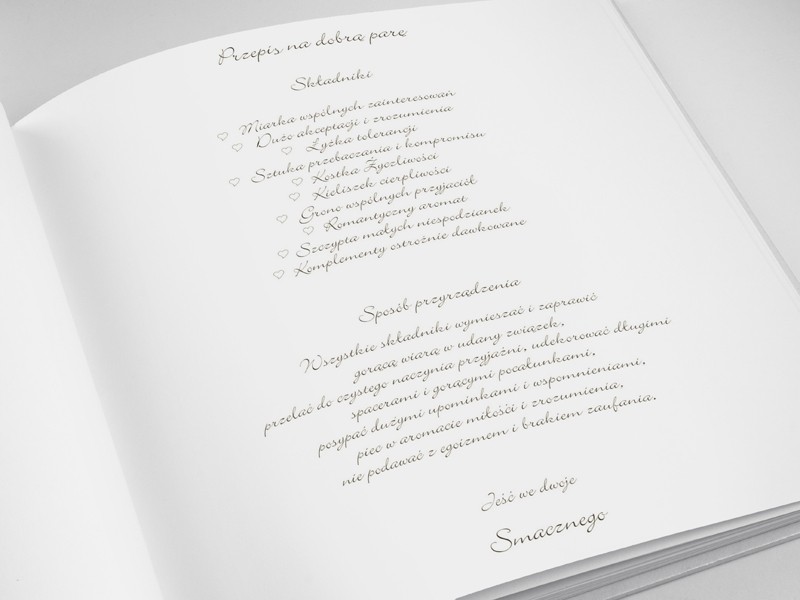 Przepis na dobrą parę
Składniki
♡ Miarka wspólnych zainteresowań
♡ Dużo akceptacji i zrozumienia
♡ Łyżka tolerancji
♡ Sztuka przebaczania i kompromisu
♡ Kostka Życzliwości
♡ Kieliszek cierpliwości
♡ Grono wspólnych przyjaciół
♡ Romantyczny aromat
♡ Szczypta małych niespodzianek
♡ Komplementy ostrożnie dawkowane
Sposób przyrządzenia
Wszystkie składniki wymieszać i zaprawić
gorącą wiarą w udany związek,
przelać do czystego naczynia przyjaźni, udekorować długimi
spacerami i gorącymi pocałunkami,
posypać dużymi upominkami i wspomnieniami,
piec w aromacie miłości i zrozumienia,
nie podawać z egoizmem i brakiem zaufania.
Jeść we dwoje
Smacznego